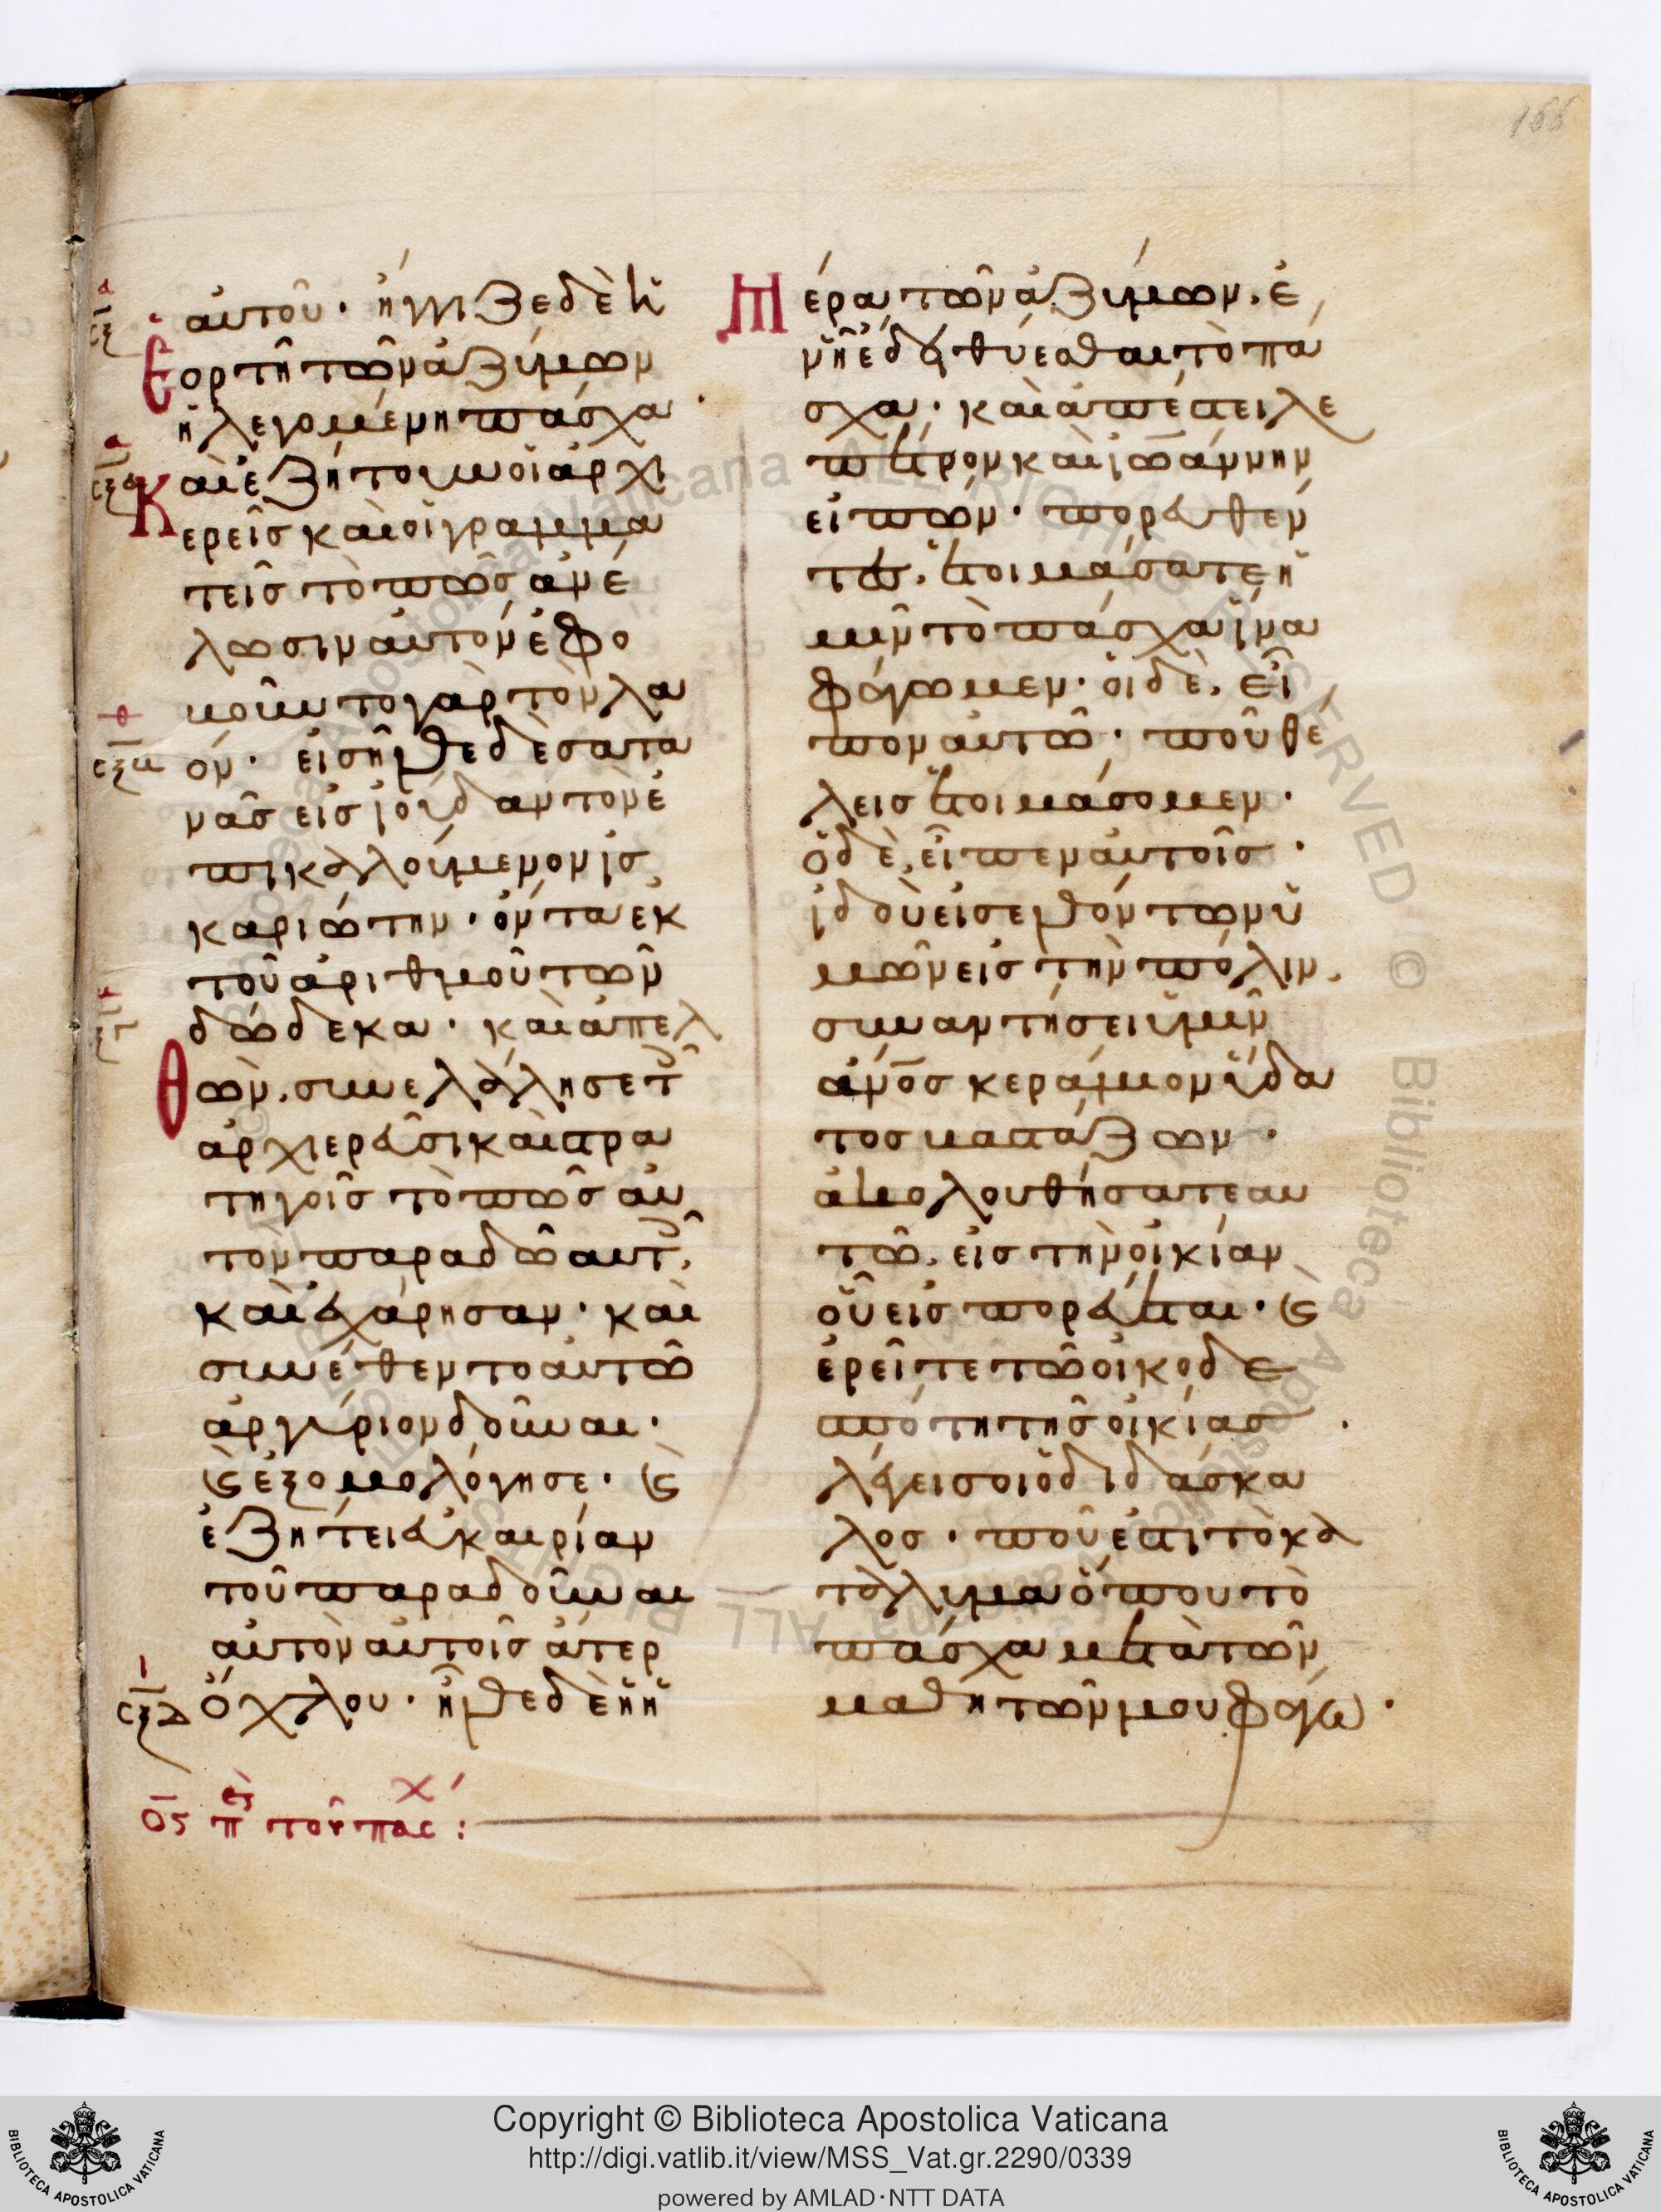 166
αὐτοῦ · ἤγγιζε δὲ ἡ
ἑορτὴ τῶν ἀζύμων
ἡ λεγομένη πάσχα ·
Καὶ ἐζήτουν οἱ ἀρχι
ερεῖς καὶ οἱ γραμμα
τεῖς τὸ πῶς ἀνέ
λωσιν αὐτὸν ἐφο
βοῦντο γὰρ τὸν λα
όν · εἰσῆλθε δὲ σατα
νᾶς εἰς ἰούδαν τὸν ἐ
πικαλούμενον ἰσ
καριώτην · ὄντα ἐκ
τοῦ ἀριθμοῦ τῶν
δώδεκα · καὶ ἀπελ
θὼν, συνελάλησε τ
ἀρχιερεῦσι καὶ στρα
τηγοῖς τὸ πῶς αὐ
τὸν παραδῶ αὐτ,
καὶ ἐχάρησαν · καὶ
συνέθεντο αὐτῶ
ἀργύριον δοῦναι ·
ϗ ἐξομολόγησε · ϗ
ἐζήτει εὐκαιρίαν
τοῦ παραδοῦναι
αὐτὸν αὐτοῖς ἄτερ
ὄχλου · ἦλθε δὲ ἡ ἡ
ος π τοῦ πασχ :
μέρα τῶν ἀζύμων, ἐ
ν ἧ ἔδει θύεσθαι τὸ πά
σχα · καὶ ἀπέστειλε
πέτρον καὶ ἰωάννην
εἰπών · πορευθέν
τες, ἑτοιμάσατε ἡ
μῖν τὸ πάσχα ἵνα
φάγωμεν · οἱ δὲ, εἶ
πον αὐτῶ · ποῦ θέ
λεις ἑτοιμάσομεν ·
ὁ δὲ, εἶπεν αὐτοῖς ·
ἰδοὺ εἰσελθόντων ὑ
μῶν εἰς τὴν πόλιν,
συναντήσει ὑμῖν
ἄνος κεράμιον ὕδα
τος βαστάζων ·
ἀκολουθήσατε αυ
τῶ, εἰς τὴν οἰκίαν
οὗ εἰσπορεύεται · ϗ
ἐρεῖτε τῶ οἰκοδε
σπότη τῆς οἰκίας ·
λέγει σοι ὁ διδάσκα
λος · ποῦ ἐστι τὸ κα
τάλυμα ὅπου τὸ
πάσχα μετὰ τῶν
μαθητῶν μου φάγω ·
Copyright © Biblioteca Apostolica Vaticana
http://digi.vatlib.it/view/MSS_Vat.gr.2290/0339
powered by AMLAD·NTT DATA
BIBLIOTECA APOSTOLICA VATICANA
BIBLIOTECA APOSTOLICA VATICANA